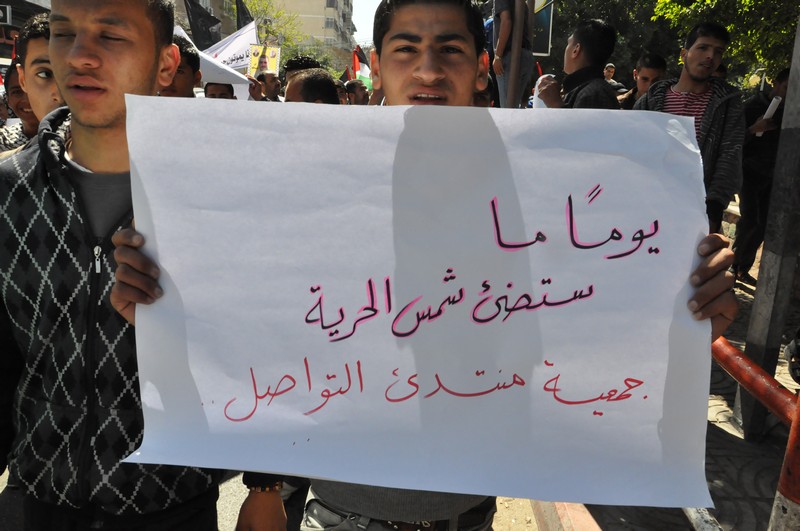 يومًا ما
ستضئ شمس الحرية
جمعية منتدئ التواصل..